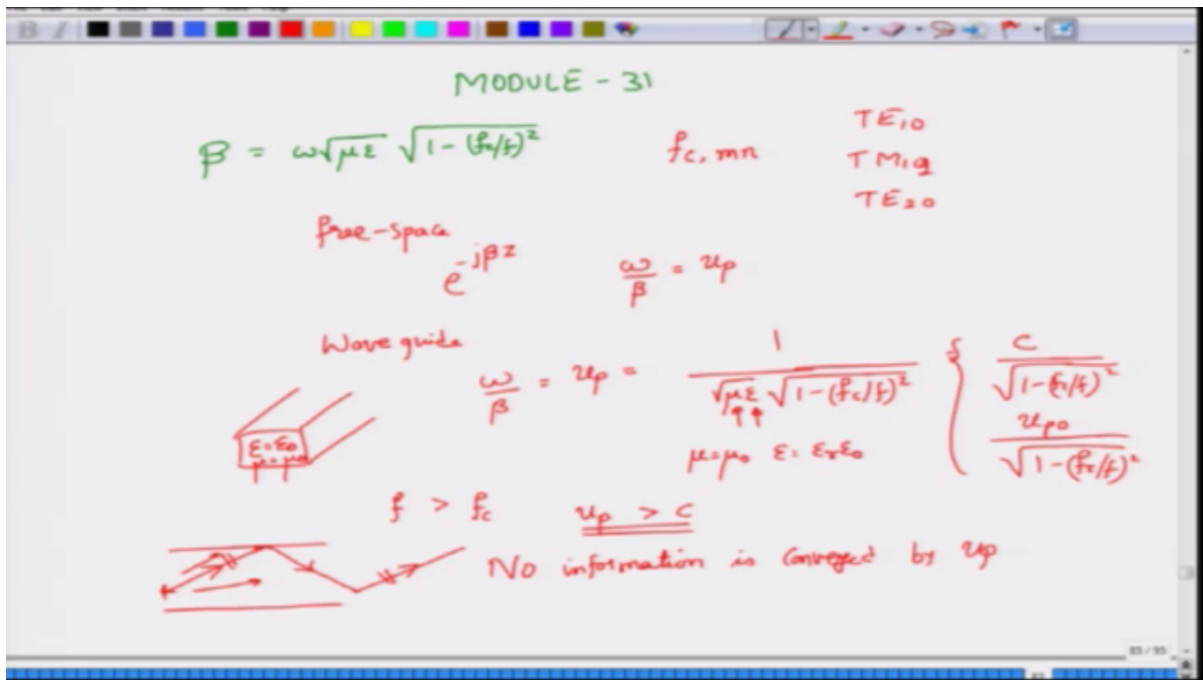 MODULE - 31
β = ω√με √1-(fc/f)²
fc,mn
TE10
TM19
TE20
free-space
e^-jβz
ω/β = up
Wave guide
ω/β = up = 1/√με √1-(fc/f)²
{ C/√1-(fc/f)²
up0/√1-(fc/f)²
ε=ε0
μ=μ0
μ=μ0 ε=εrε0
f > fc
up > C
No information is conveyed by up
83 / 93